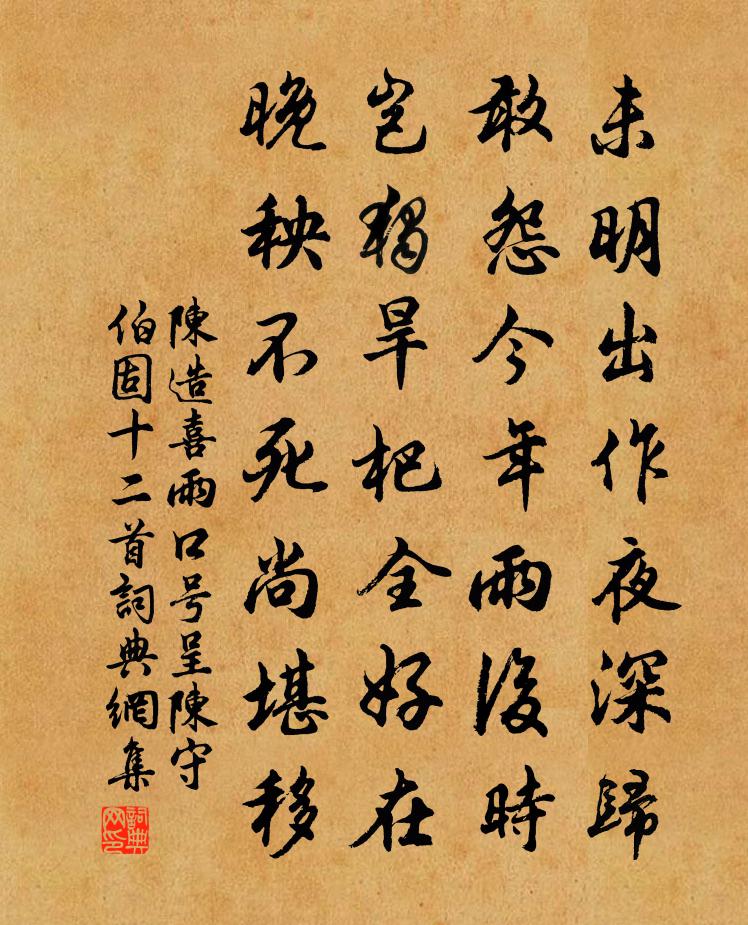 未明出作夜深歸
敢怨今年雨後時
豈獨旱杷全好在
晚秧不死尚堪移
陳造喜雨口号呈陳守
伯固十二首詞典網集
詞典网印